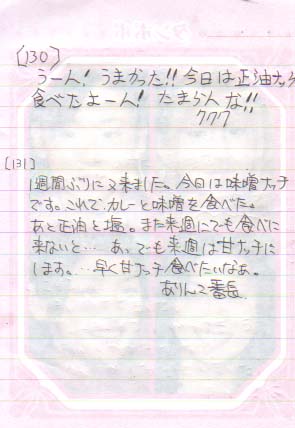 [130]
うーん！うまかった!!今日は正油ナッ
食べたよーん！たまらんな!!
ククク
[131]
1週間ぶりに又来ました。今日は味噌ナッチ
です。これで、カレーと味噌を食べた。
あと正油と塩。また来週にでも食べに
来ないと…あ、でも来週は甘ナッチに
します。…早く甘ナッチ食べたいなぁ。
ありんこ番長